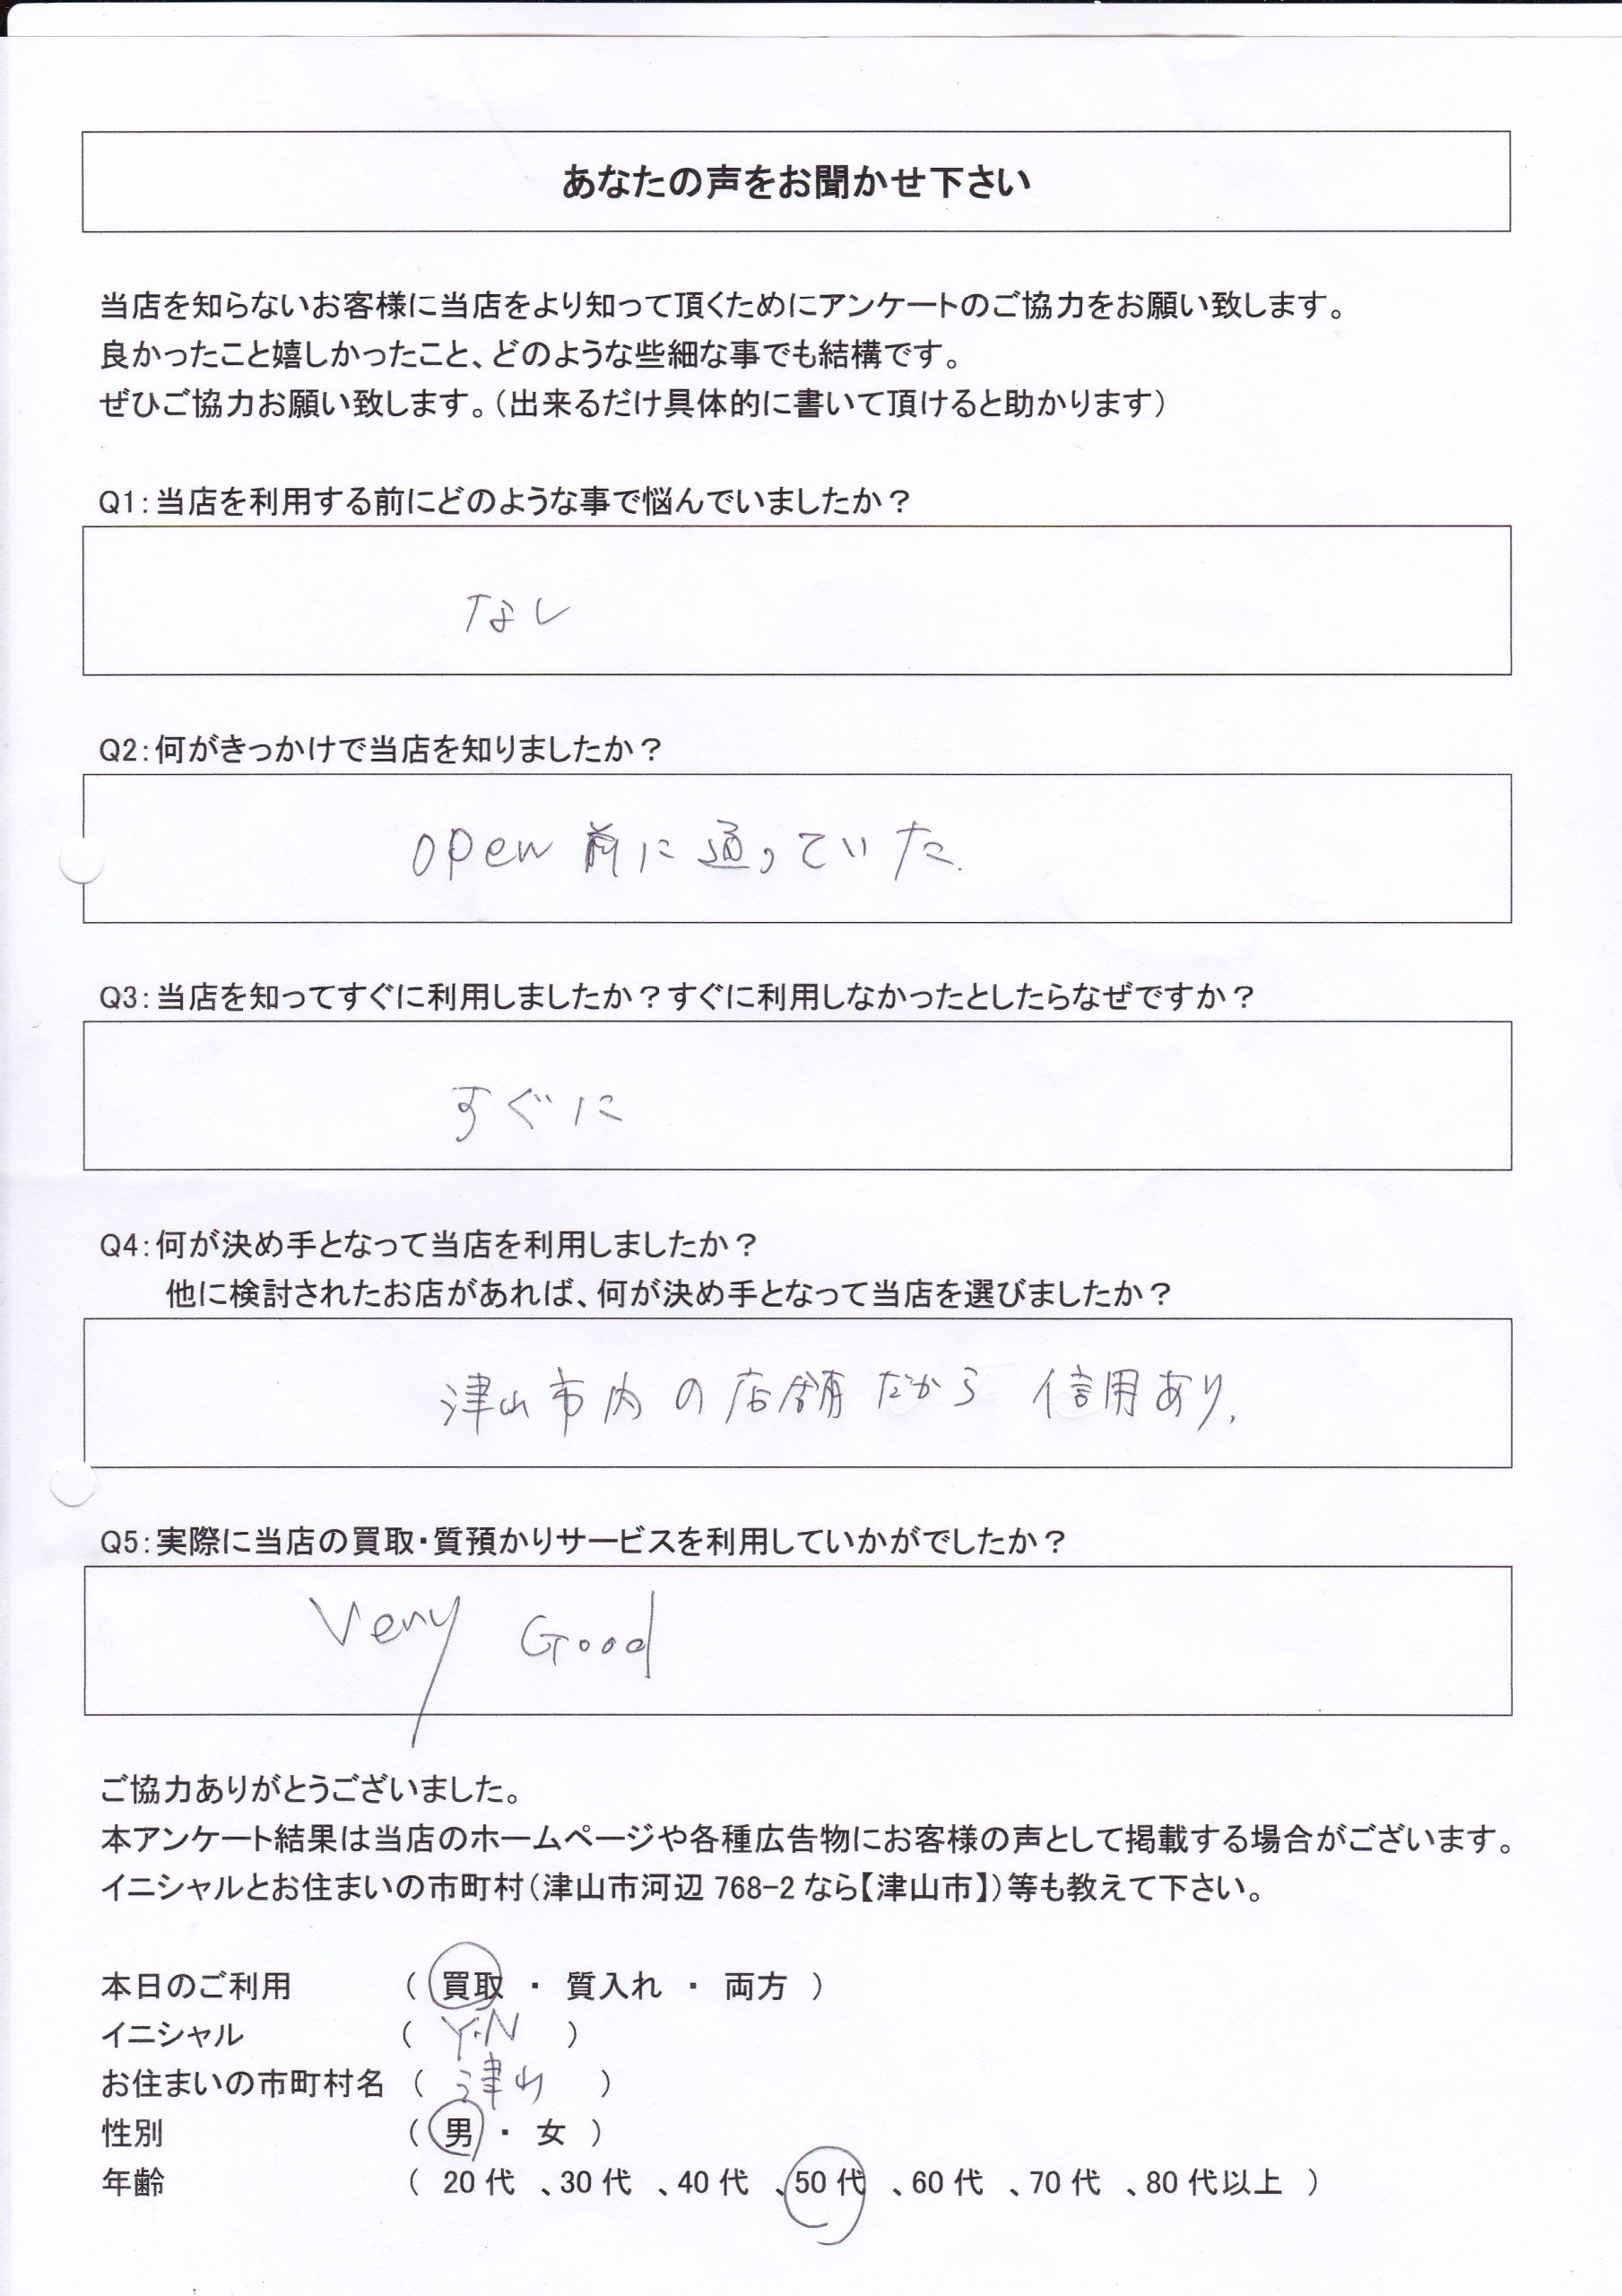 あなたの声をお聞かせ下さい
当店を知らないお客様に当店をより知って頂くためにアンケートのご協力をお願い致します。
良かったこと嬉しかったこと、どのような些細な事でも結構です。
ぜひご協力お願い致します。（出来るだけ具体的に書いて頂けると助かります）
Q1：当店を利用する前にどのような事で悩んでいましたか？
なし
Q2：何がきっかけで当店を知りましたか？
open 前に通っていた.
Q3：当店を知ってすぐに利用しましたか？すぐに利用しなかったとしたらなぜですか？
すぐに
Q4：何が決め手となって当店を利用しましたか？
他に検討されたお店があれば、何が決め手となって当店を選びましたか？
津山市内の店舗だから 信用あり,
Q5：実際に当店の買取・質預かりサービスを利用していかがでしたか？
Very Good
ご協力ありがとうございました。
本アンケート結果は当店のホームページや各種広告物にお客様の声として掲載する場合がございます。
イニシャルとお住まいの市町村（津山市河辺 768-2 なら【津山市】）等も教えて下さい。
本日のご利用 （ 買取 ・ 質入れ ・ 両方 ）
イニシャル （ Y.N ）
お住まいの市町村名 （ 津山 ）
性別 （ 男 ・ 女 ）
年齢 （ 20 代 、30 代 、40 代 、50 代 、60 代 、70 代 、80 代以上 ）